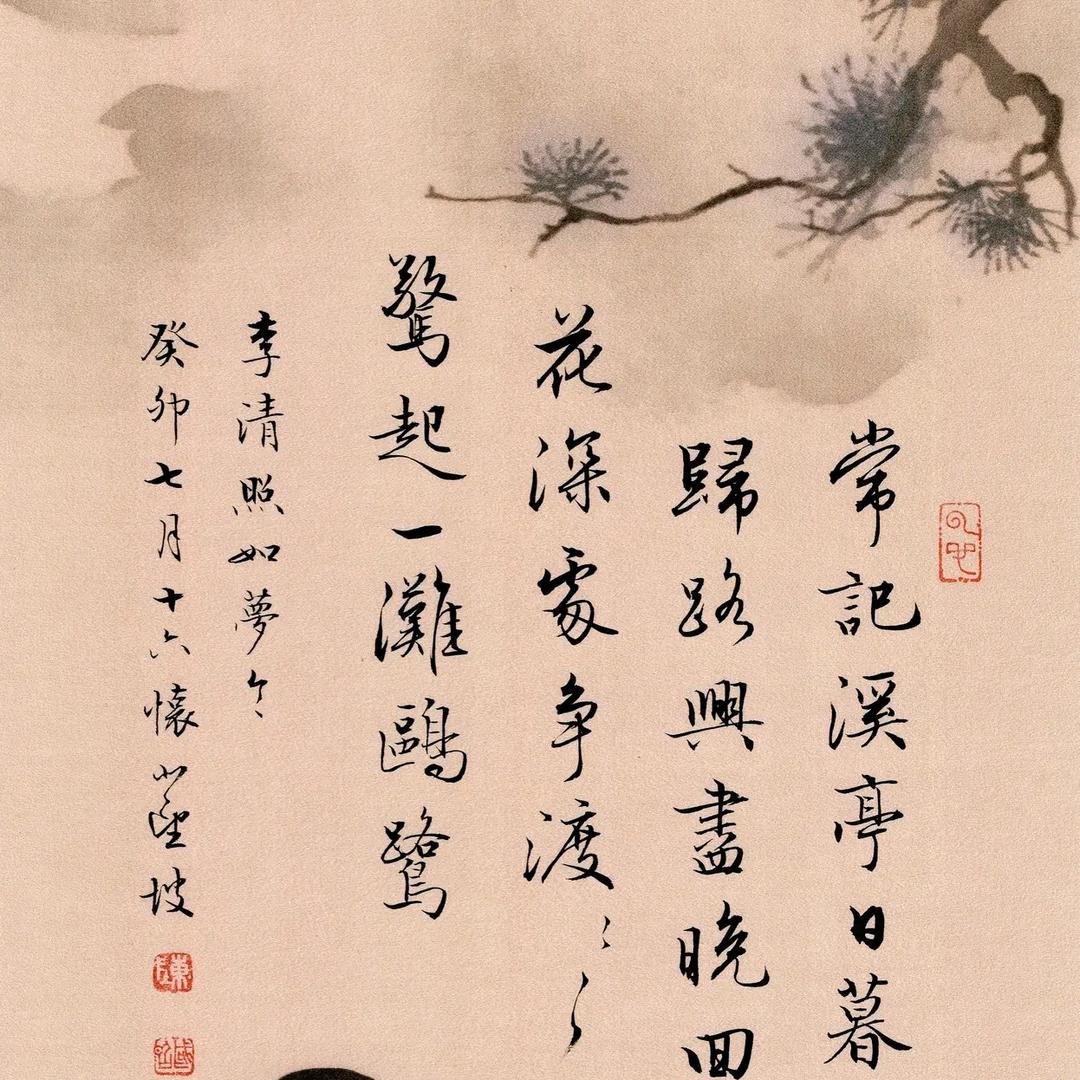 常記溪亭日暮
歸路興盡晚回
花深處争渡〻〻
驚起一灘鷗鷺
李清照如夢令
癸卯七月十六懷坡